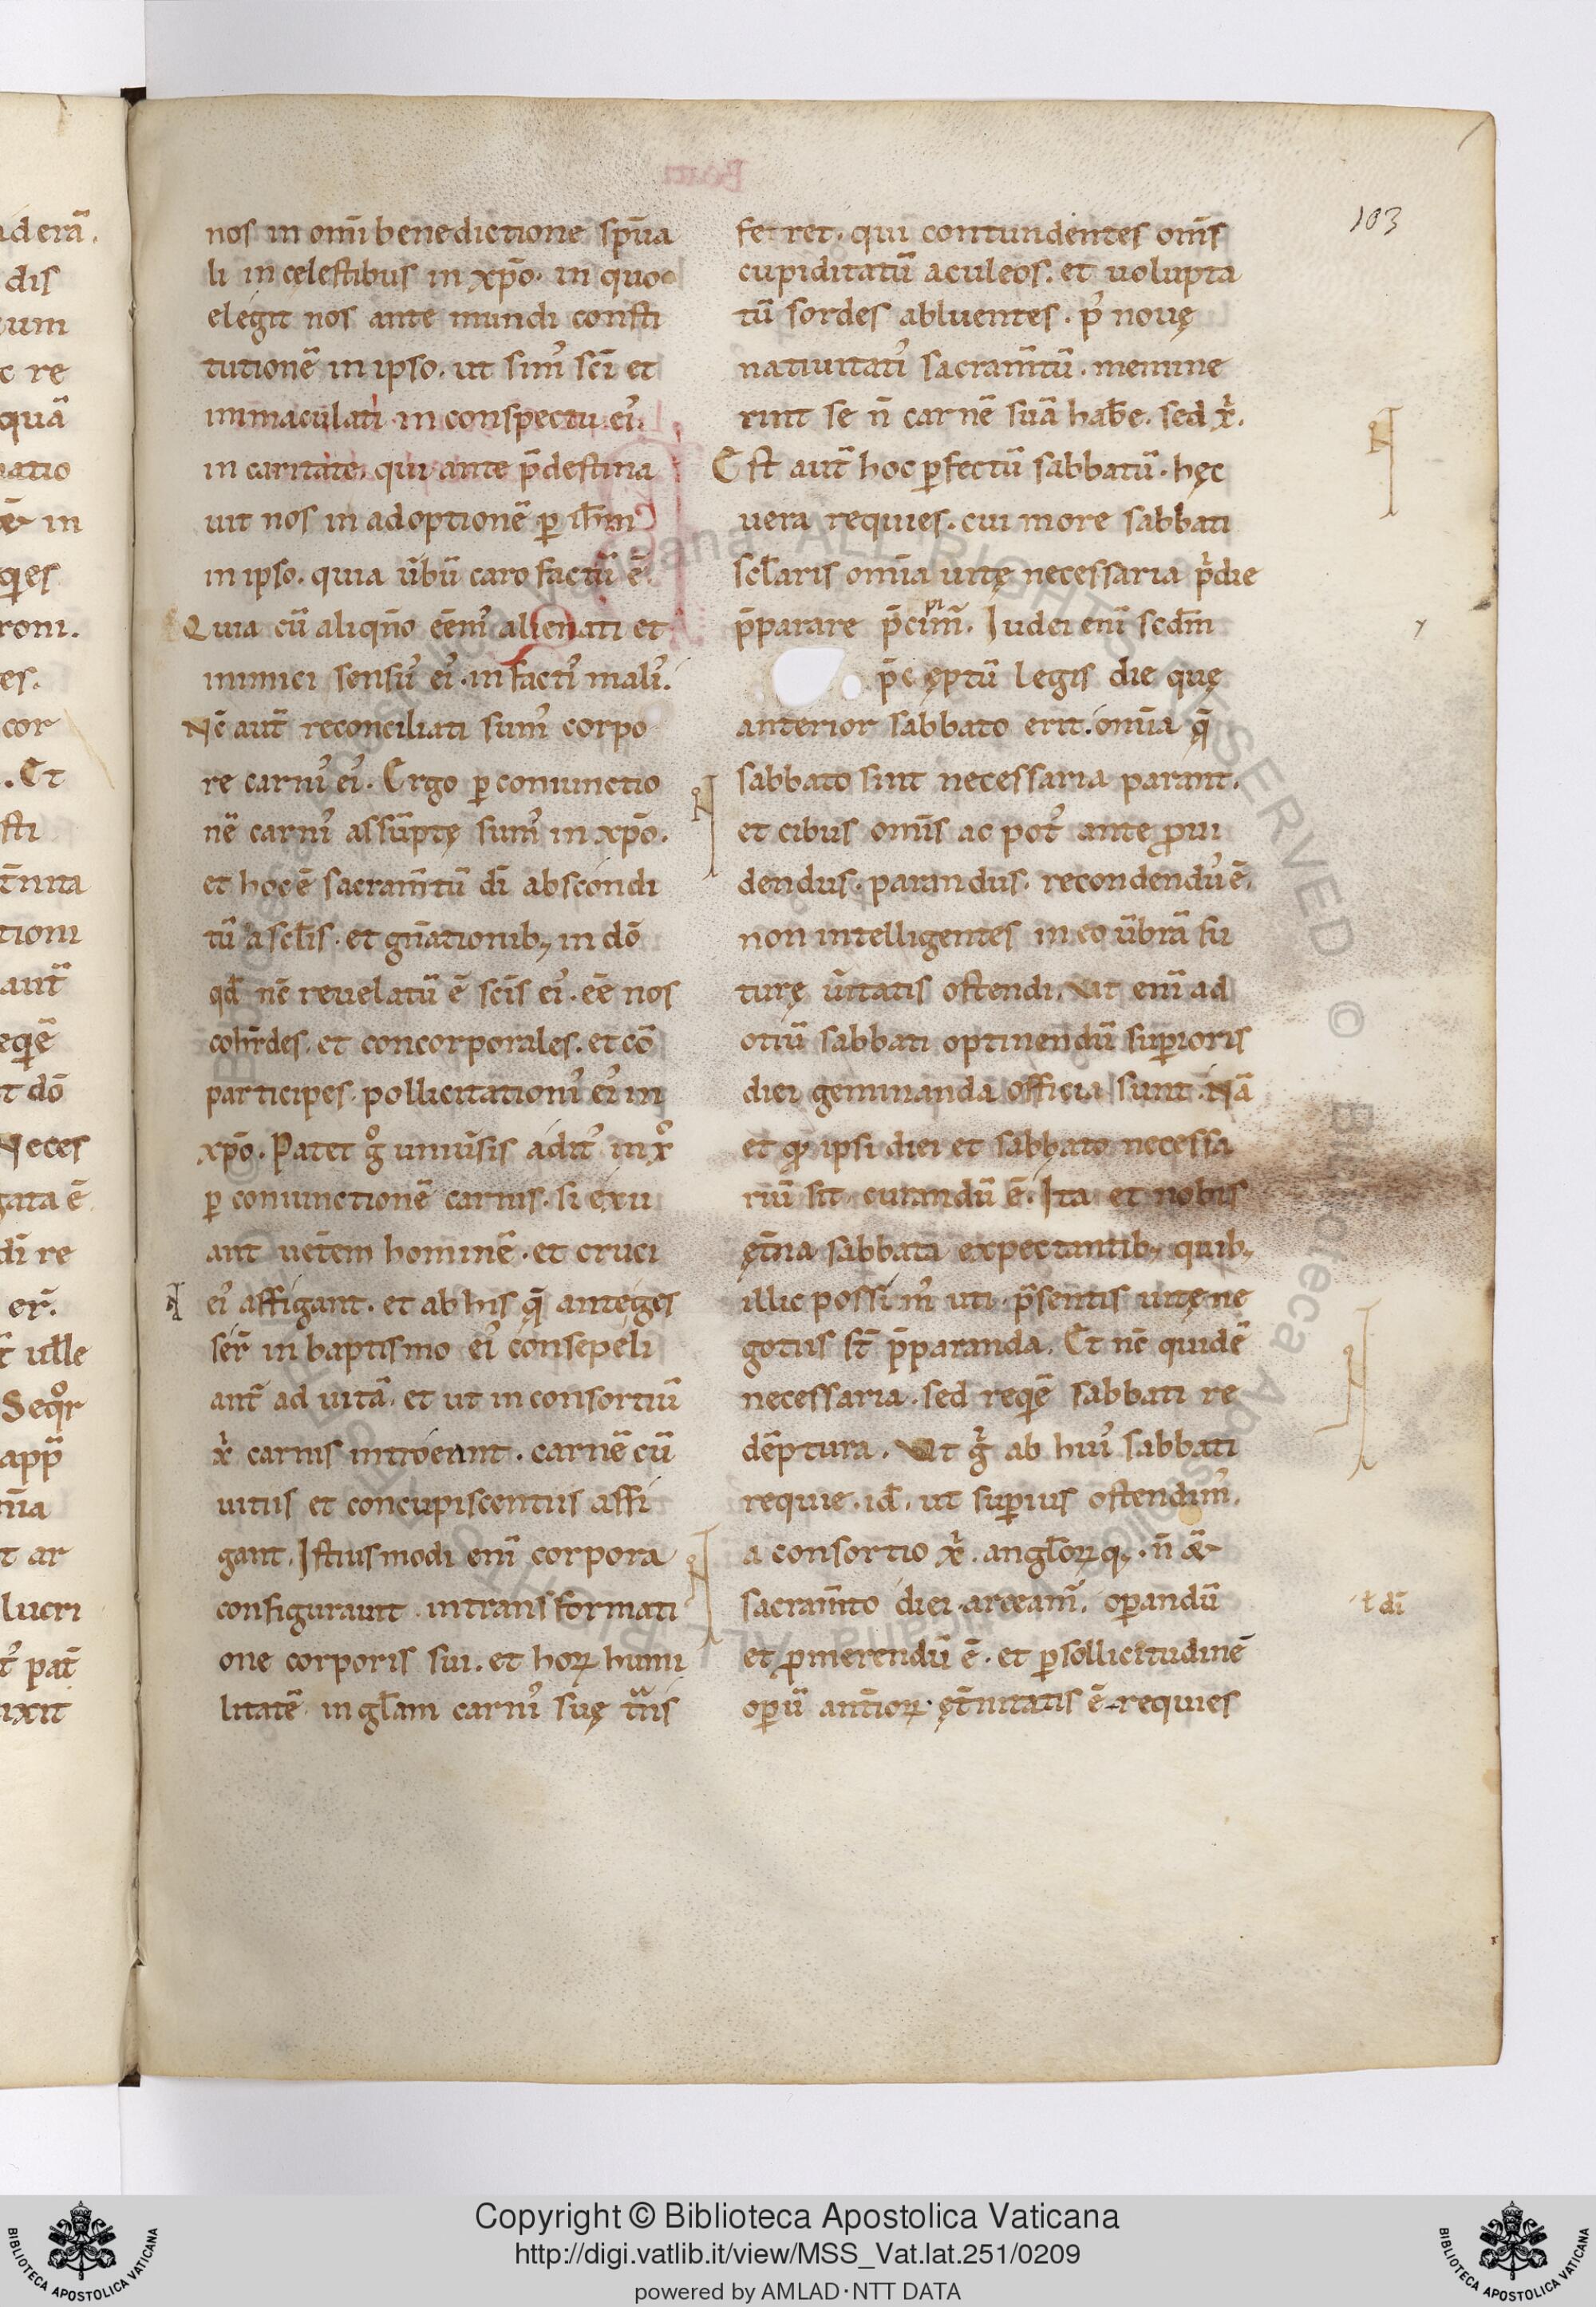 103
nos in om̄i benedictione spūa
li in cęlestibus in xp̄o. in quo
elegit nos ante mundi consti
tutionē in ipso. ut sim᾽ sc̄i et
immaculati in conspectu ei᾽.
in caritate. qui ante p̄destina
uit nos in adoptionē ꝑ ih̄m
in ipso. quia ūbū caro factū ē.
Quia cū aliqn̄o eēm᾽ alienati et
inimici sensu᾽ ei᾽. in facti᾽ mali᾽.
Nc̄ aut̄ reconciliati sum᾽ corpo
re carni᾽ ei᾽. Ergo ꝑ coniunctio
nē carni᾽ assūptę sum᾽ in xp̄o.
et hoc ē sacram̄tū dī abscondi
tū a sc̄lis. et gn̄ationib; in dō
qd̄ nc̄ reuelatū ē sc̄is ei᾽. eē nos
cohr̄des. et concorporales. et cō
participes pollicitationi᾽ ei᾽ in
xp̄o. Patet gͦ uniūsis adit᾽ in xͦ
ꝑ coniunctionē carnis. si exu
ant uet̄em hominē. et cruci
ei᾽ affigant. et ab his q̄ ante ges
ser̄ in baptismo ei᾽ consepeli
ant̄ ad uitā. et ut in consortiū
xⁱ carnis introeant. carnē cū
uitiis et concupiscentiis affi
gant. Istiusmodi enī corpora
configurauit in transformati
one corporis sui. et hoꝝ humi
litatē in gl̄am carni᾽ suę tn̄s
ferret. qui contundentes om̄s
cupiditatū aculeos. et uolupta
tū sordes abluentes. p᾽ nouę
natiuitati᾽ sacram̄tū. memine
rint se n̄ carnē suā hab̄e. sed xⁱ.
Est aut̄ hoc ꝑfectū sabbatū. hęc
uera requies. cui more sabbati
sc̄laris om̄ia uitę necessaria pⁱdie
p̄parare p̄cipim̄. Iudei enī scd̄m
p̄cęptū legis die quę
anterior sabbato erit. om̄ia q̄
sabbato sint necessaria parant.
et cibus om̄is ac pot᾽ ante ꝓui
dendus. parandus. recondendu᾽ ē.
non intelligentes in eo ūbrā fu
turę ūitatis ostendi. Vt enī ad
otiū sabbati optinendū suꝑioris
diei geminanda officia sunt. Nā
et qđ ipsi diei et sabbato necessa
riū sit curandū ē. Ita et nobis
ęt̄na sabbata expectantib; quib;
illic possim᾽ uti p̄sentis uitę ne
gotiis st̄ p̄paranda. Et nc̄ quidē
necessaria. sed reqͥē sabbati re
dēptura. Vt gⁱ ab hui᾽ sabbati
requie. id̄. ut suꝑius ostendim᾽.
a consortio xⁱ. angl̄oꝝq;. n̄ &
sacram̄to diei arceam̄. oꝑandū
et ꝓmerendū ē. et ꝑ sollicitudinē
oꝑū ant̄ioꝝ. ęt̄nitatis ē requies
ł dī
Copyright © Biblioteca Apostolica Vaticana
http://digi.vatlib.it/view/MSS_Vat.lat.251/0209
powered by AMLAD·NTT DATA